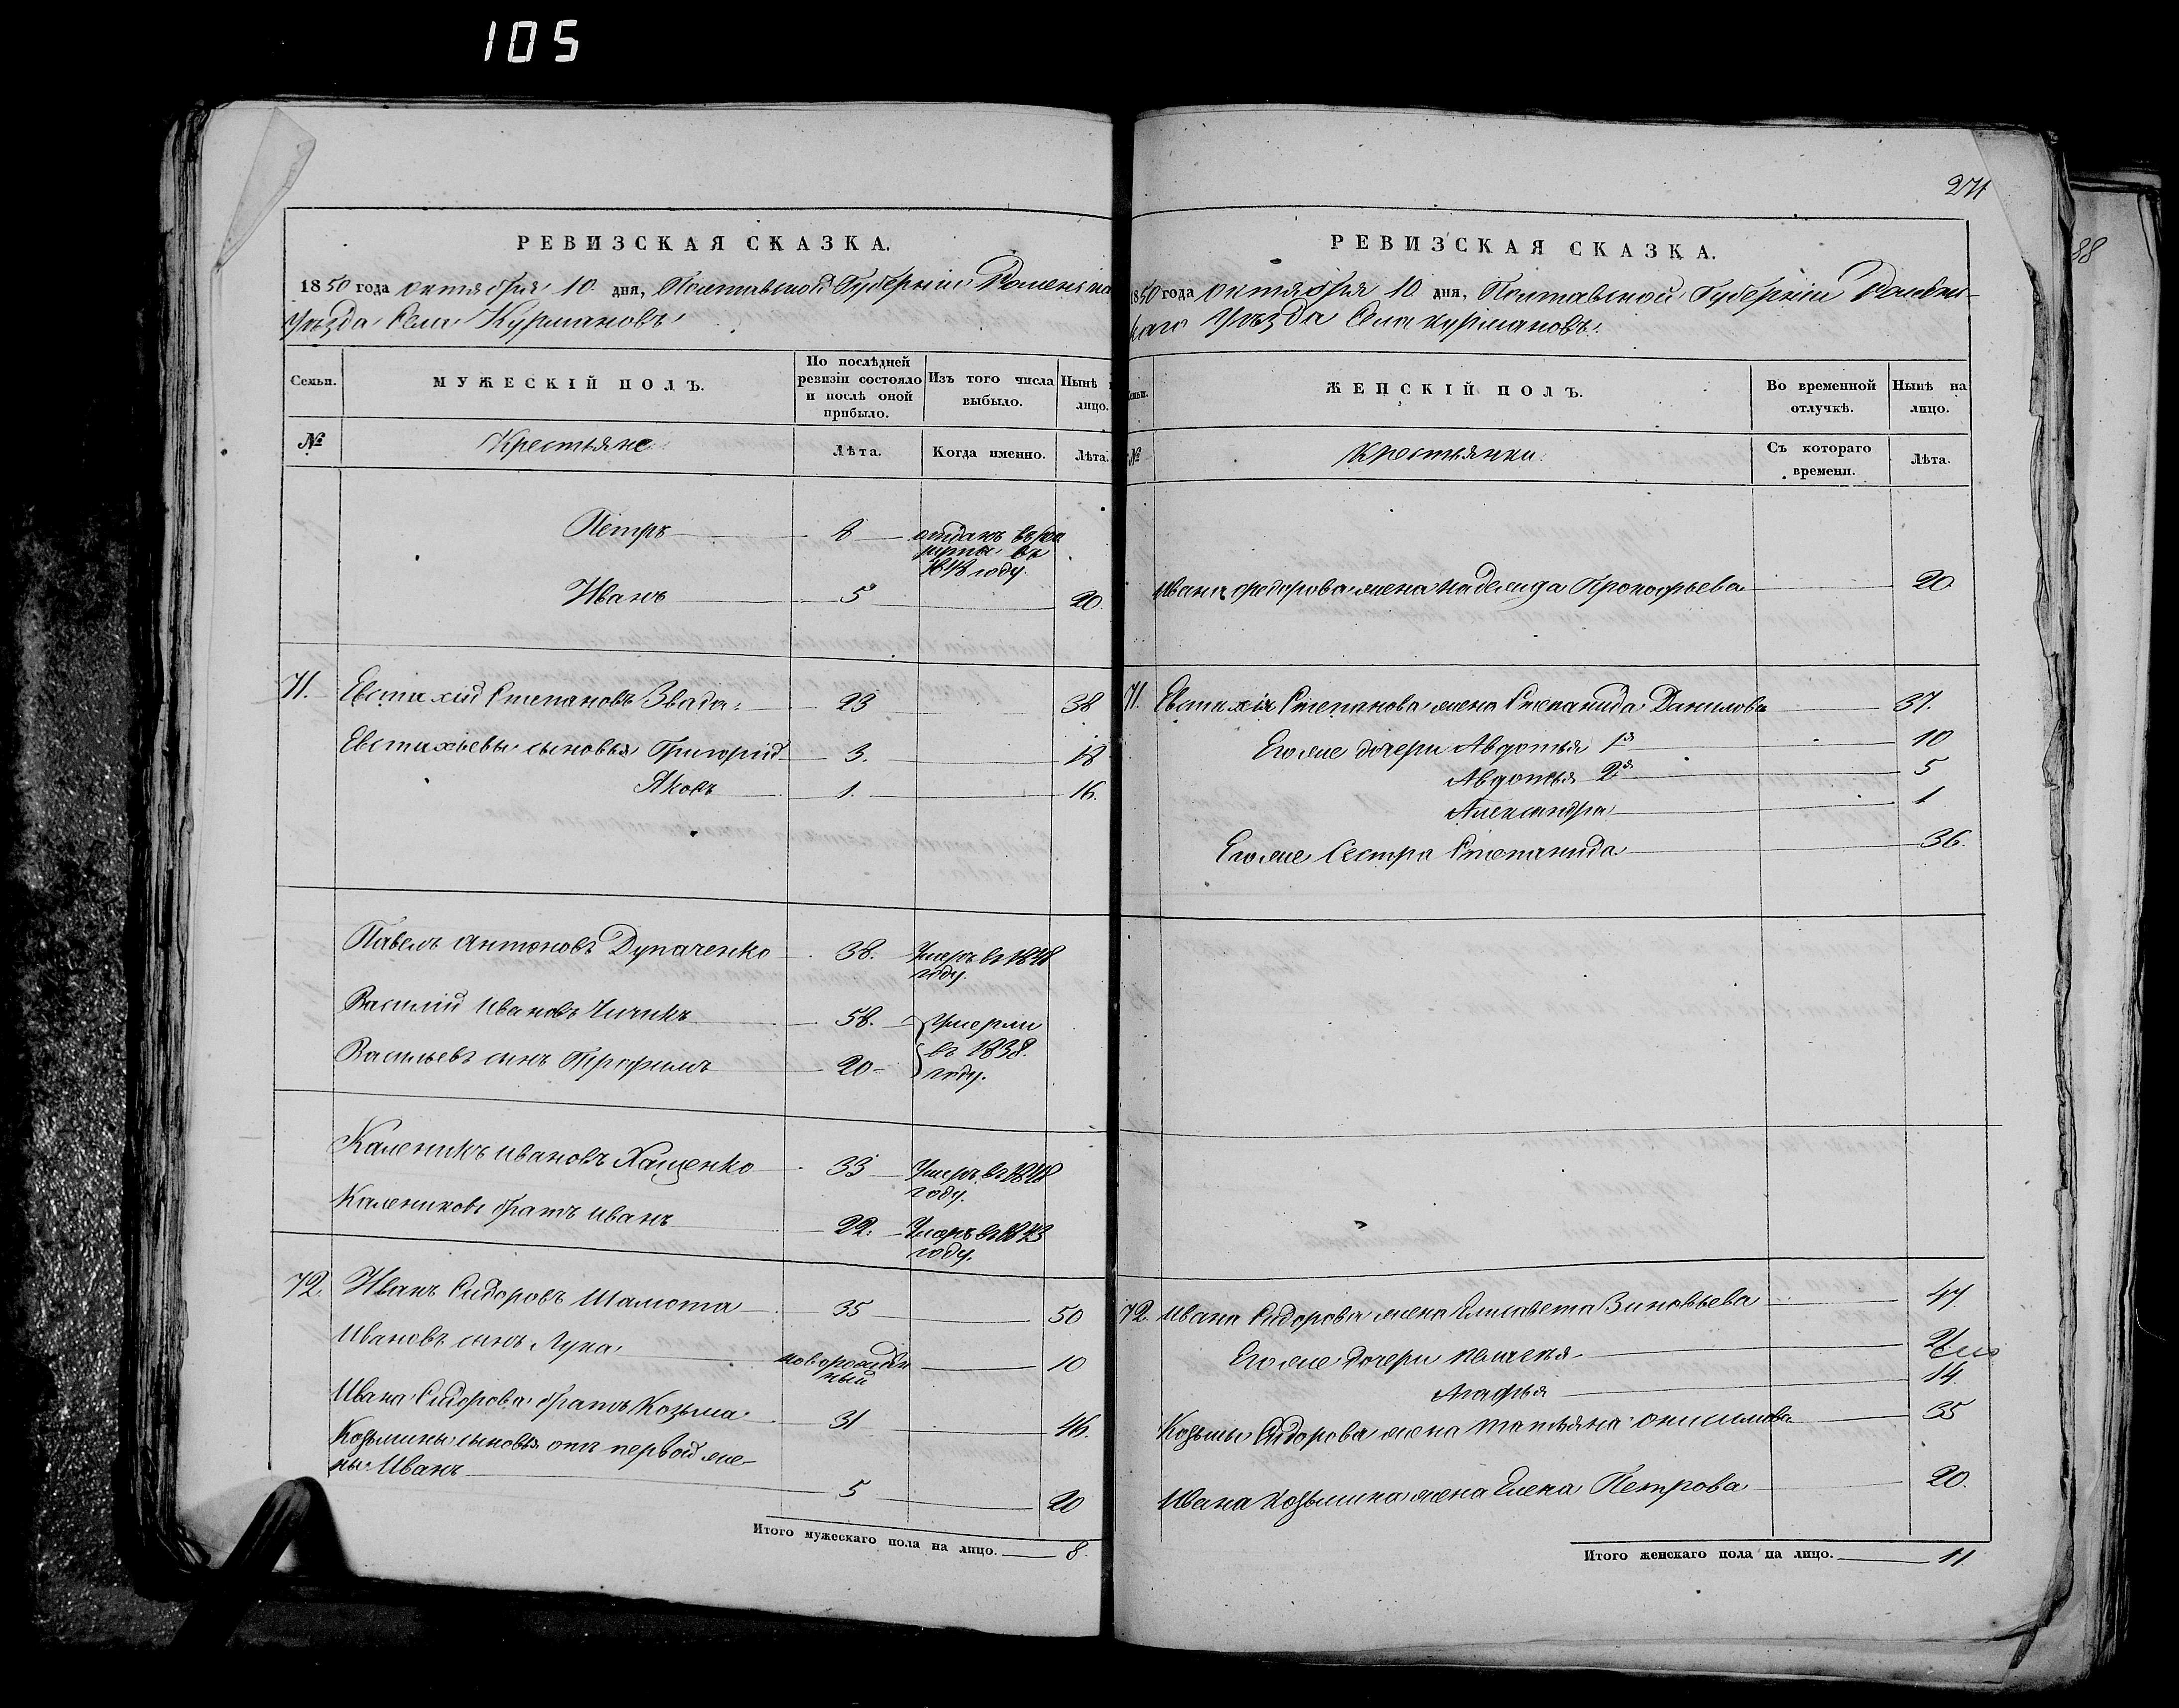 105
РЕВИЗСКАЯ СКАЗКА.
1850 года октября 10 дня, Полтавской Губерніи Роменска
Уѣзда Села Курмановъ
Семьи.
МУЖЕСКІЙ ПОЛЪ.
По послѣдней ревизіи состояло и послѣ оной прибыло.
Изъ того числа выбыло.
Нынѣ
лицо.
№
Крестьяне
Лѣта.
Когда именно.
Лѣта.
Петръ 8 отданъ въ рек
руты въ
1848 году.
Иванъ 5 20.
71. Евстахій Степановъ Звада 23 38
Евстахіевы сыновья Григорій 3. 18
Яковъ 1. 16.
Павелъ Антоновъ Дупаченко 38. Умеръ въ 1848
году.
Василій Ивановъ Чичикъ 58. Умерли
въ 1838.
году.
Васильевъ сынъ Трофимъ 20
Каленикъ Ивановъ Хащенко 33 Умеръ въ 1848
году.
Калениковъ братъ Иванъ 22. Умеръ въ 1843
году.
72. Иванъ Сидоровъ Шамота 35 50
Ивановъ сынъ Лука новорожден
ный 10
Ивана Сидорова братъ Козьма 31 46.
Козьмины сыновья отъ первой же-
ны Иванъ 5 20
Итого мужескаго пола на лицо. 8.
271
РЕВИЗСКАЯ СКАЗКА.
1850 года октября 10 дня, Полтавской Губерніи Роменс-
каго Уѣзда Села Курмановъ.
ЖЕНСКІЙ ПОЛЪ.
Во временной отлучкѣ.
Нынѣ на лицо.
№
Крестьянки.
Съ котораго времени.
Лѣта.
Ивана Федорова жена Надежда Прокофьева 20
71. Евстахія Степанова жена Степанида Данилова 37.
Его же дочери Авдотья 1я 10
Авдотья 2я 5
Александра 1
Его же Сестра Степанида 36.
72. Ивана Сидорова жена Елисавета Зиновьева 47
Его же дочери
Агафья 14
Козьмы Сидорова жена Татьяна Онисимова 35
Ивана Козьмина жена Елена Петрова 20.
Итого женскаго пола на лицо. 11.
88